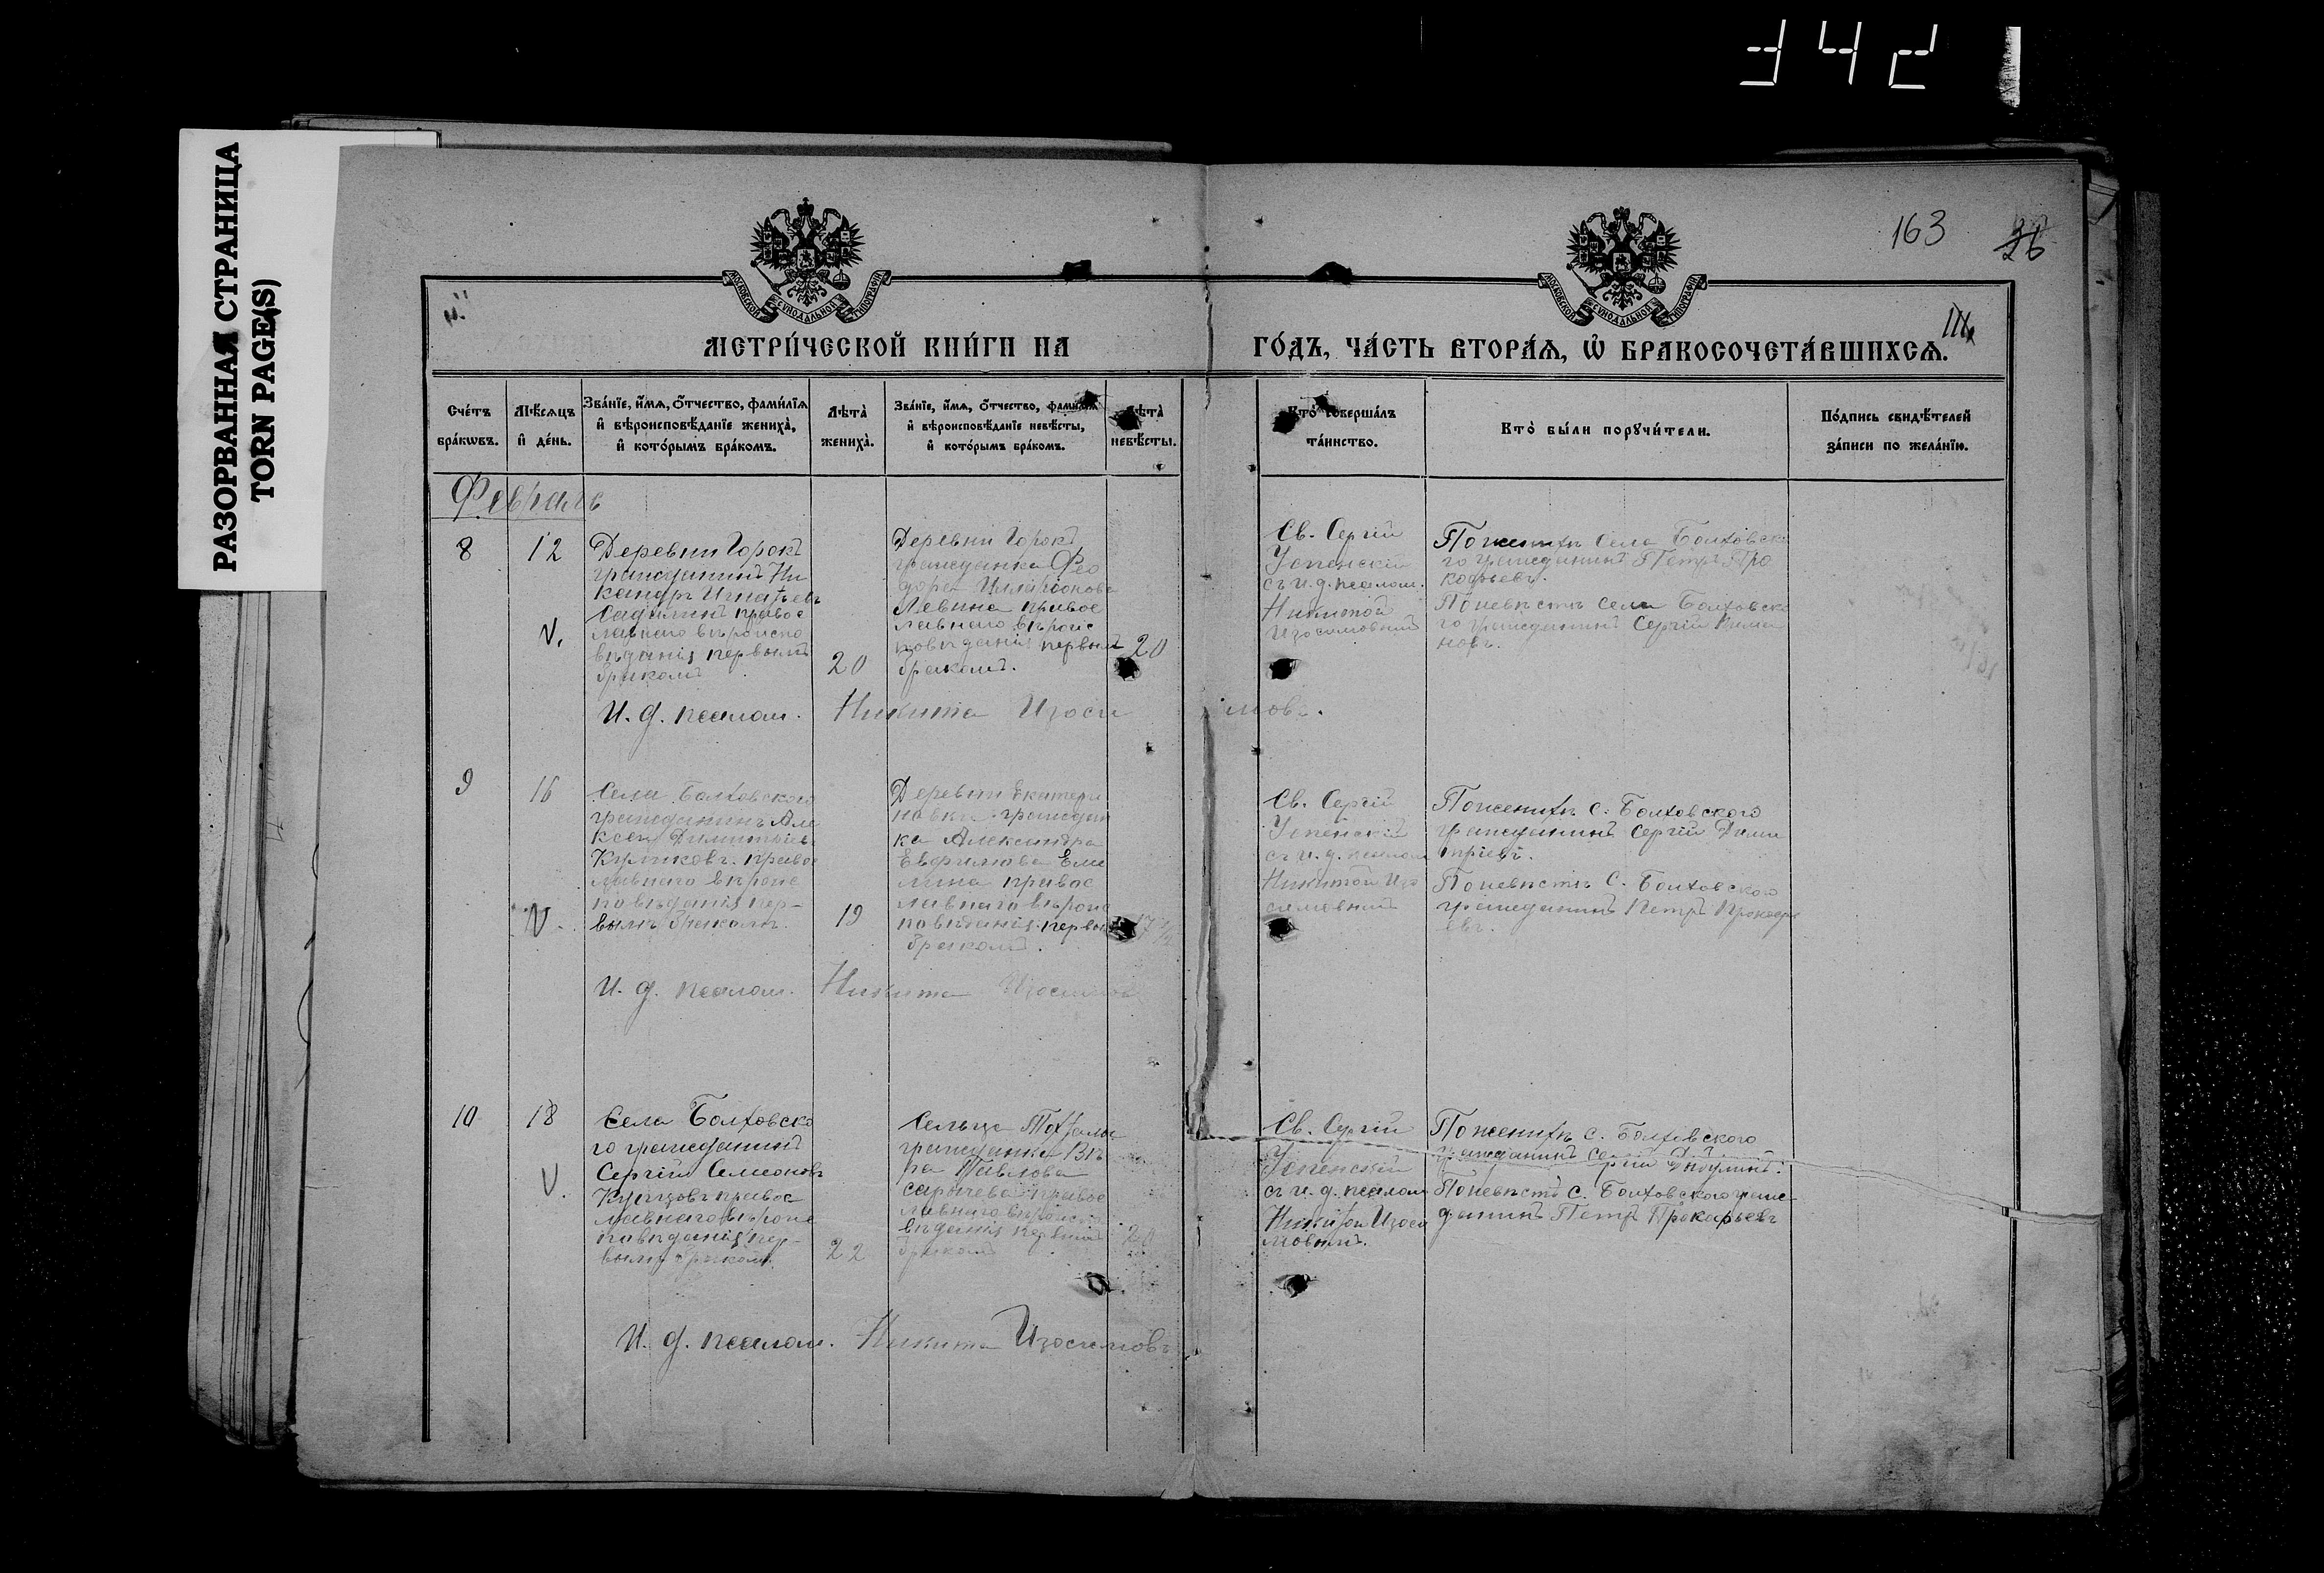 3421
РАЗОРВАННАЯ СТРАНИЦА
TORN PAGE(S)
163
36
МОСКОВСКОЙ СѴНОДАЛЬНОЙ ТИПОГРАФІИ
МОСКОВСКОЙ СѴНОДАЛЬНОЙ ТИПОГРАФІИ
III
МЕТРИ́ЧЕСКОЙ КНИ́ГИ НА ГО́ДЪ, ЧА́СТЬ ВТОРА́Ѧ, Ѡ҆ БРАКОСОЧЕТА́ВШИХСѦ.
Сче́тъ бра́кѡвъ.
Мѣ́сѧцъ и҆ де́нь.
Зва́нїе, и҆́мѧ, ѻ҆́тчество, фами́лїѧ
и҆ вѣроисповѣ́данїе жениха̀,
и҆ кото́рымъ бра́комъ.
Лѣта̀ жениха̀.
Зва́нїе, и҆́мѧ, ѻ҆́тчество, фами́лїѧ
и҆ вѣроисповѣ́данїе невѣ́сты,
и҆ кото́рымъ бра́комъ.
Лѣта̀ невѣ́сты.
Кто̀ соверша́лъ та́инство.
Кто̀ бы́ли порꙋчи́тели.
По́дпись свидѣ́телей
за́писи по жела́нїю.
Февраль
8
12
V.
Деревни Горокъ
гражданинъ Ни
каноръ Игнатьевъ
православнаго вѣроиспо
вѣданія первымъ
бракомъ
20
Деревни Горокъ
гражданка Фео
дора Илларіонова
Левина правос
лавнаго вѣроис
повѣданія первымъ
бракомъ.
20
Св. Сергій
Успенскій
съ и. д. псалом.
Никитой
Изосимовымъ
По женихѣ села Болховско
го гражданинъ Петръ Про
кофьевъ.
По невѣстѣ села Болховско
го гражданинъ Сергій
И. д. псалом. Никита Изосимовъ.
9
16
V.
Села Болховского
гражданинъ Але
ксей Димитріевъ
Куликовъ правос
лавнаго вѣроис
повѣданія пер-
вымъ бракомъ.
19
Деревни Екатери
новки граждан
ка Александра
Евфимова Еме
лина правос
лавнаго вѣроис
повѣданія первымъ
бракомъ.
17 1/2
Св. Сергій
Успенскій
съ и. д. псалом
Никитой Изо
симовымъ
По женихѣ с. Болховского
гражданинъ Сергій Дими
тріевъ.
По невѣстѣ с. Болховского
гражданинъ Петръ Прокофь
евъ.
И. д. псалом. Никита Изосимовъ
10
18
V.
Села Болховско
го гражданинъ
Сергій Симеоновъ
Купцовъ правос
лавнаго вѣроис
повѣданія пер-
вымъ бракомъ
22
Сельца
гражданка Вѣ
ра Павлова
Сарычева правос
лавнаго вѣроиспо
вѣданія первымъ
бракомъ
20
Св. Сергій
Успенскій
съ и. д. псалом
Никитой Изоси
мовымъ.
По женихѣ с. Болховского
гражданинъ Сергій
По невѣстѣ с. Болховского граж-
данинъ Петръ Прокофьевъ
И. д. псалом. Никита Изосимовъ